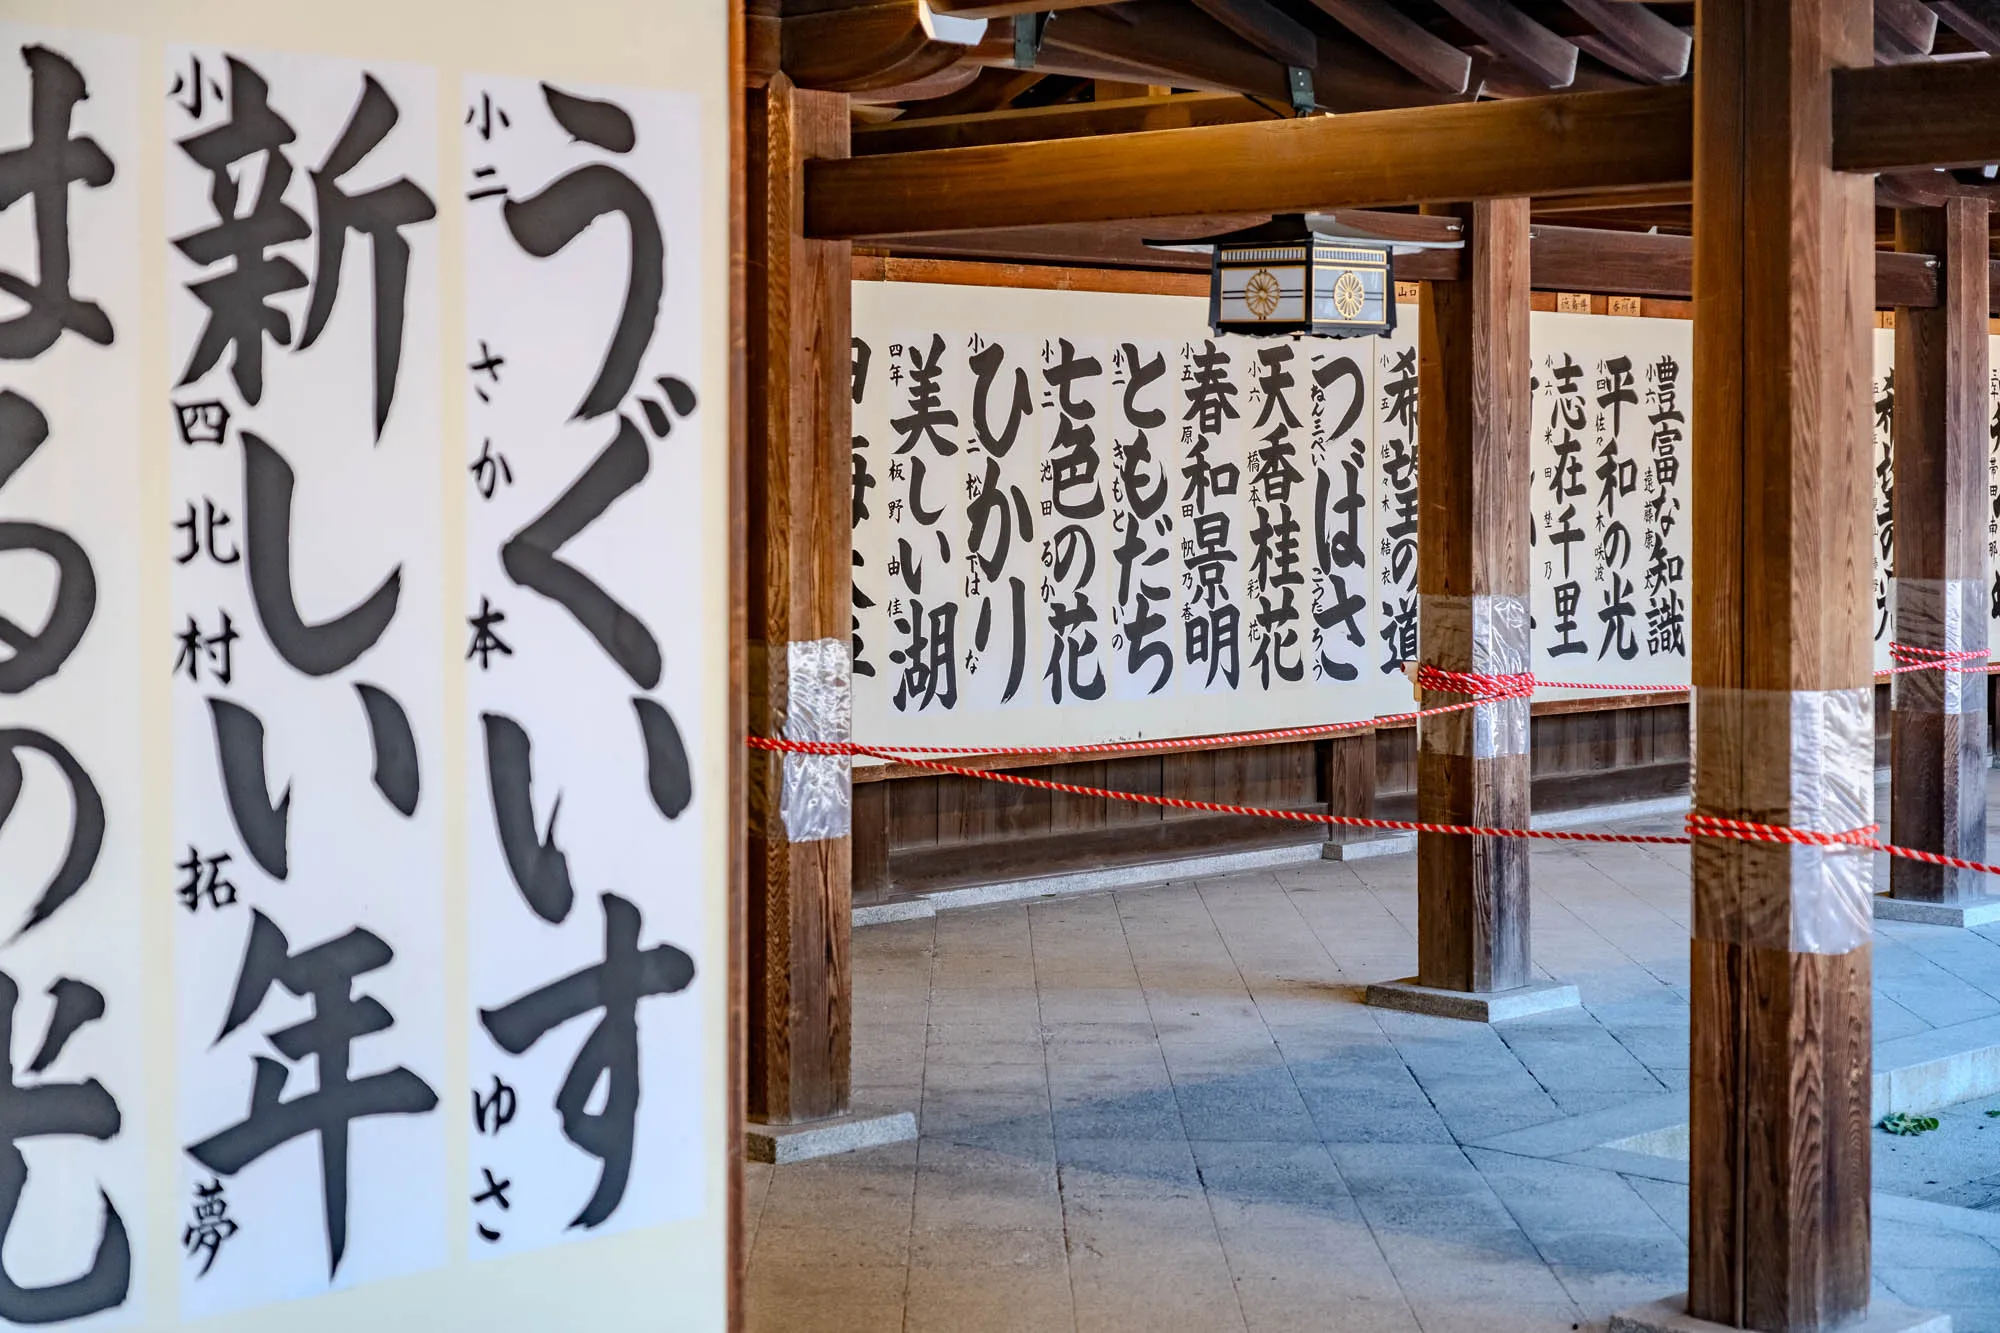 うぐいす
小二 さか本 ゆさ
新しい年
小四 北村 拓夢
はるの光
山口
徳島県
香川県
豊富な知識
小六 遠藤康太
平和の光
小四 佐々木 咲波
志在千里
小六 米田 埜乃
希望の道
小五 佐々木 結衣
つばさ
こうたろう
天香桂花
小六 橋本 彩花
春和景明
小五 原田 帆乃香
ともだち
小二 きもと いの
七色の花
小二 池田 るか
ひかり
小二 松下 はな
美しい湖
四年 板野 由佳